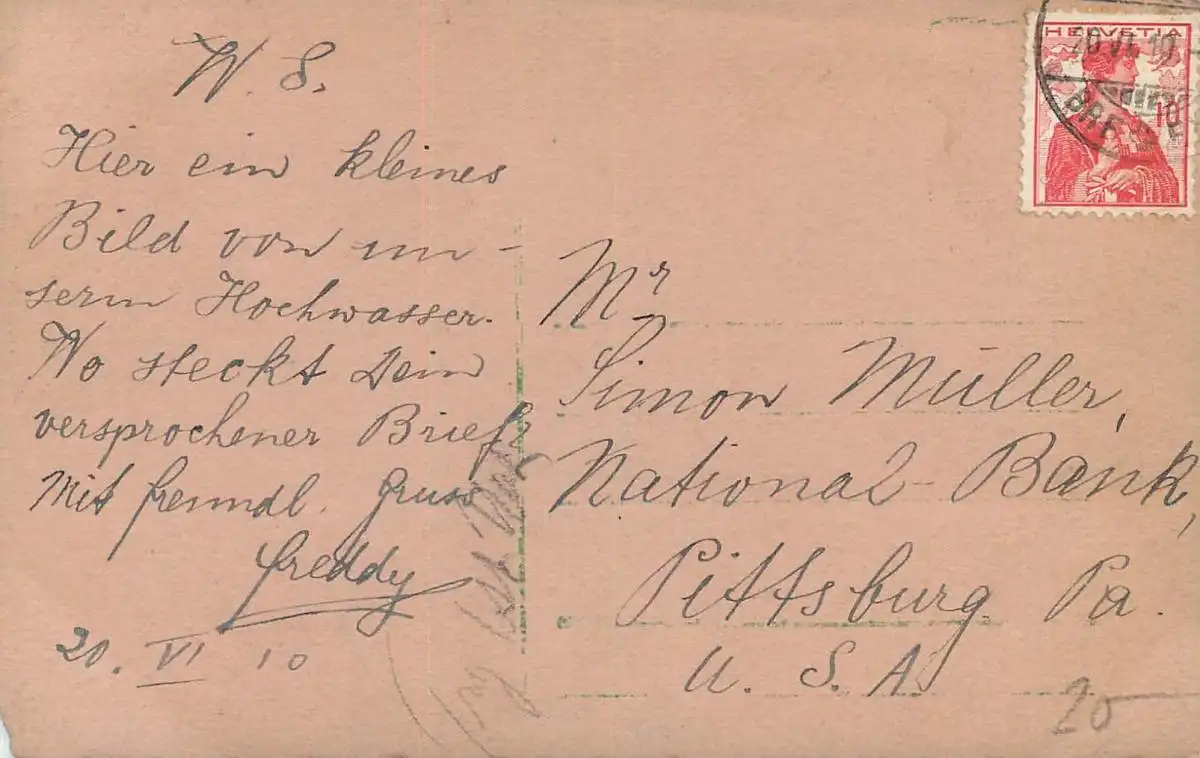 W. S.
Hier ein kleines
Bild von un-
serm Hochwasser.
Wo steckt Dein
versprochener Brief?
Mit freundl. Gruss
Freddy
20. VI 10
HELVETIA
10
20 VI 10
Mr
Simon Müller,
National-Bank,
Pittsburg Pa.
U. S. A.
Try
20